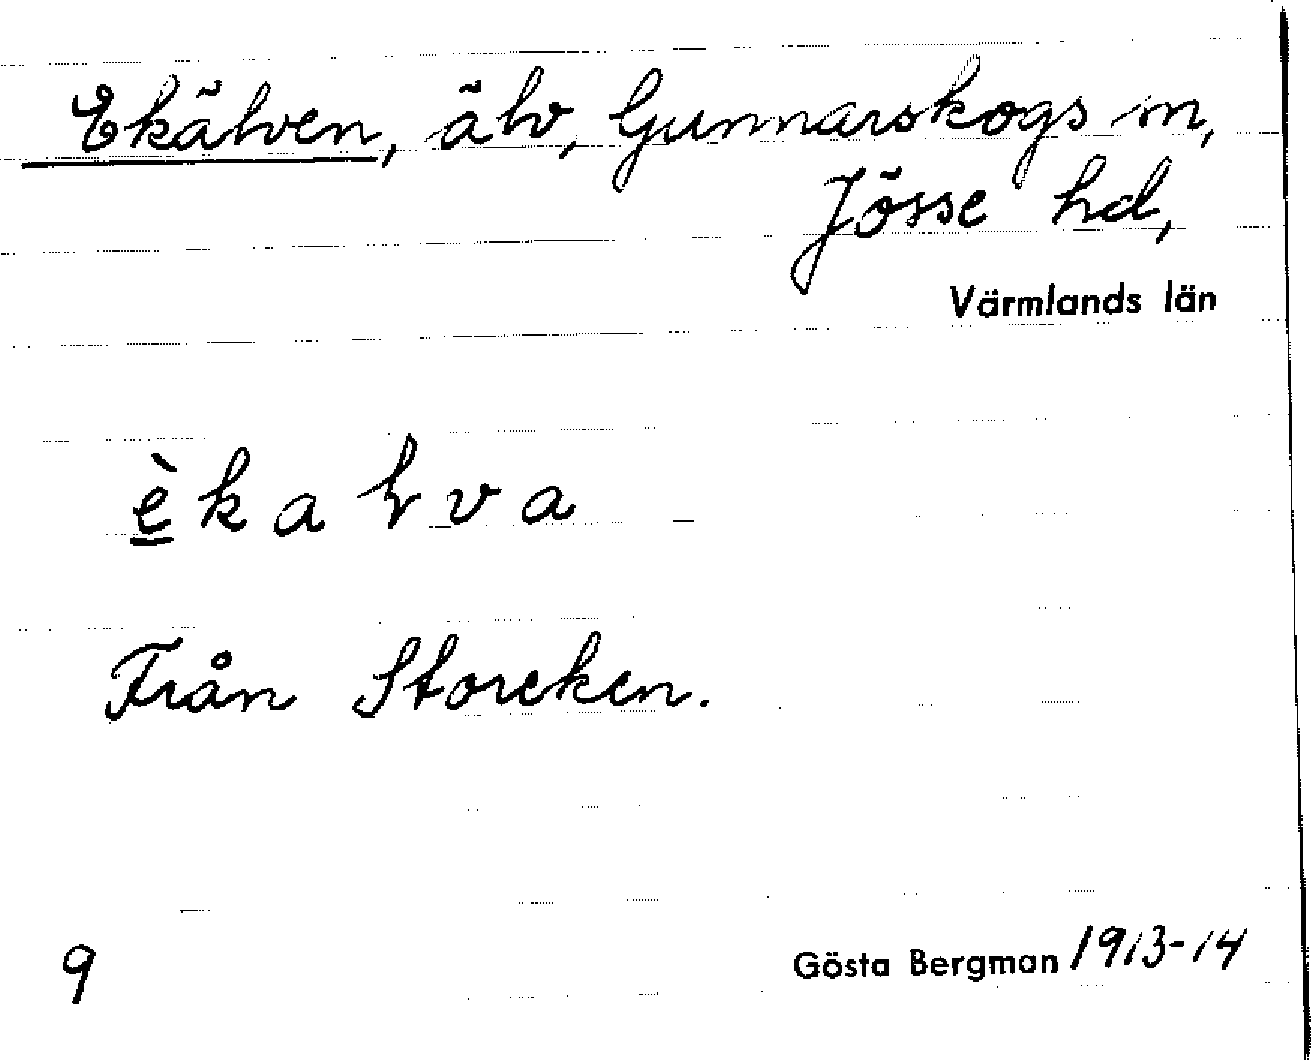 Ekälven, älv, Gunnarskogs sn,
Jösse hd,
Värmlands län
èkaɽva
Från Storeken.
9
Gösta Bergman 1913-14